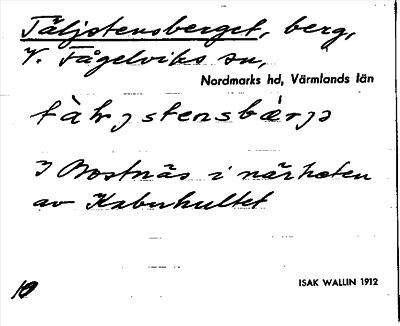 Täljstensberget, berg,
V. Fågelviks sn,
Nordmarks hd, Värmlands län
I Bostnäs i närheten
av
ISAK WALLIN 1912
10